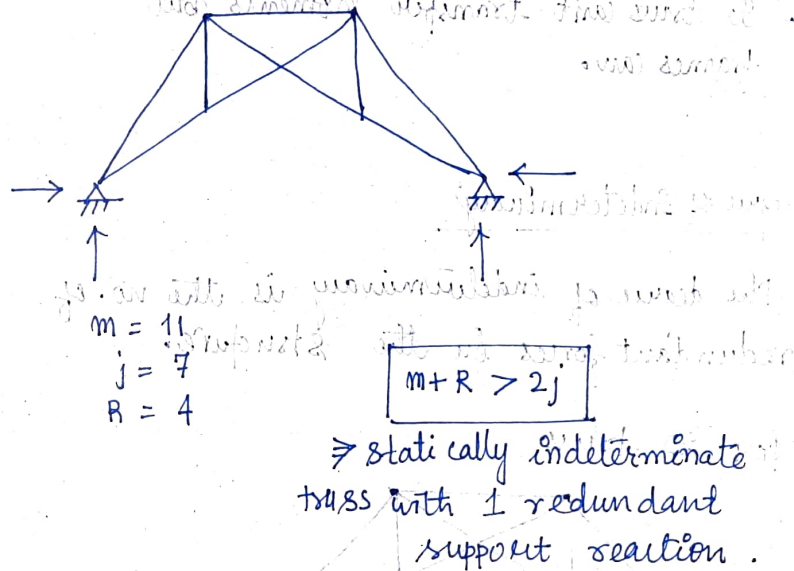 m = 11
j = 7
R = 4
m+R > 2j
⇒ statically indeterminate
truss with 1 redundant
support reaction.